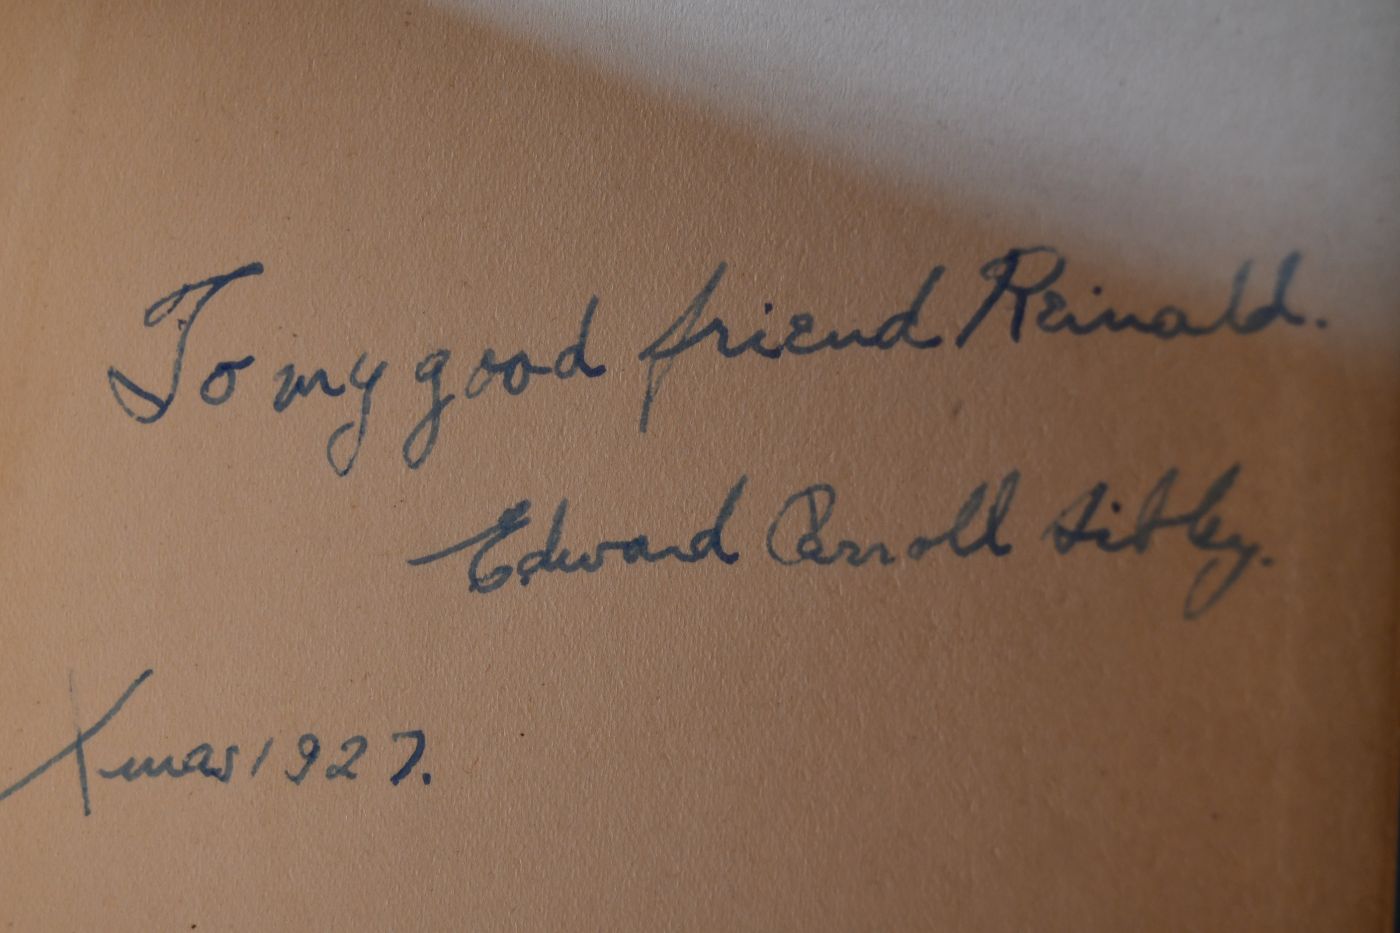 To my good friend Reinald.
Edward Carroll Sibley.
Xmas 1927.